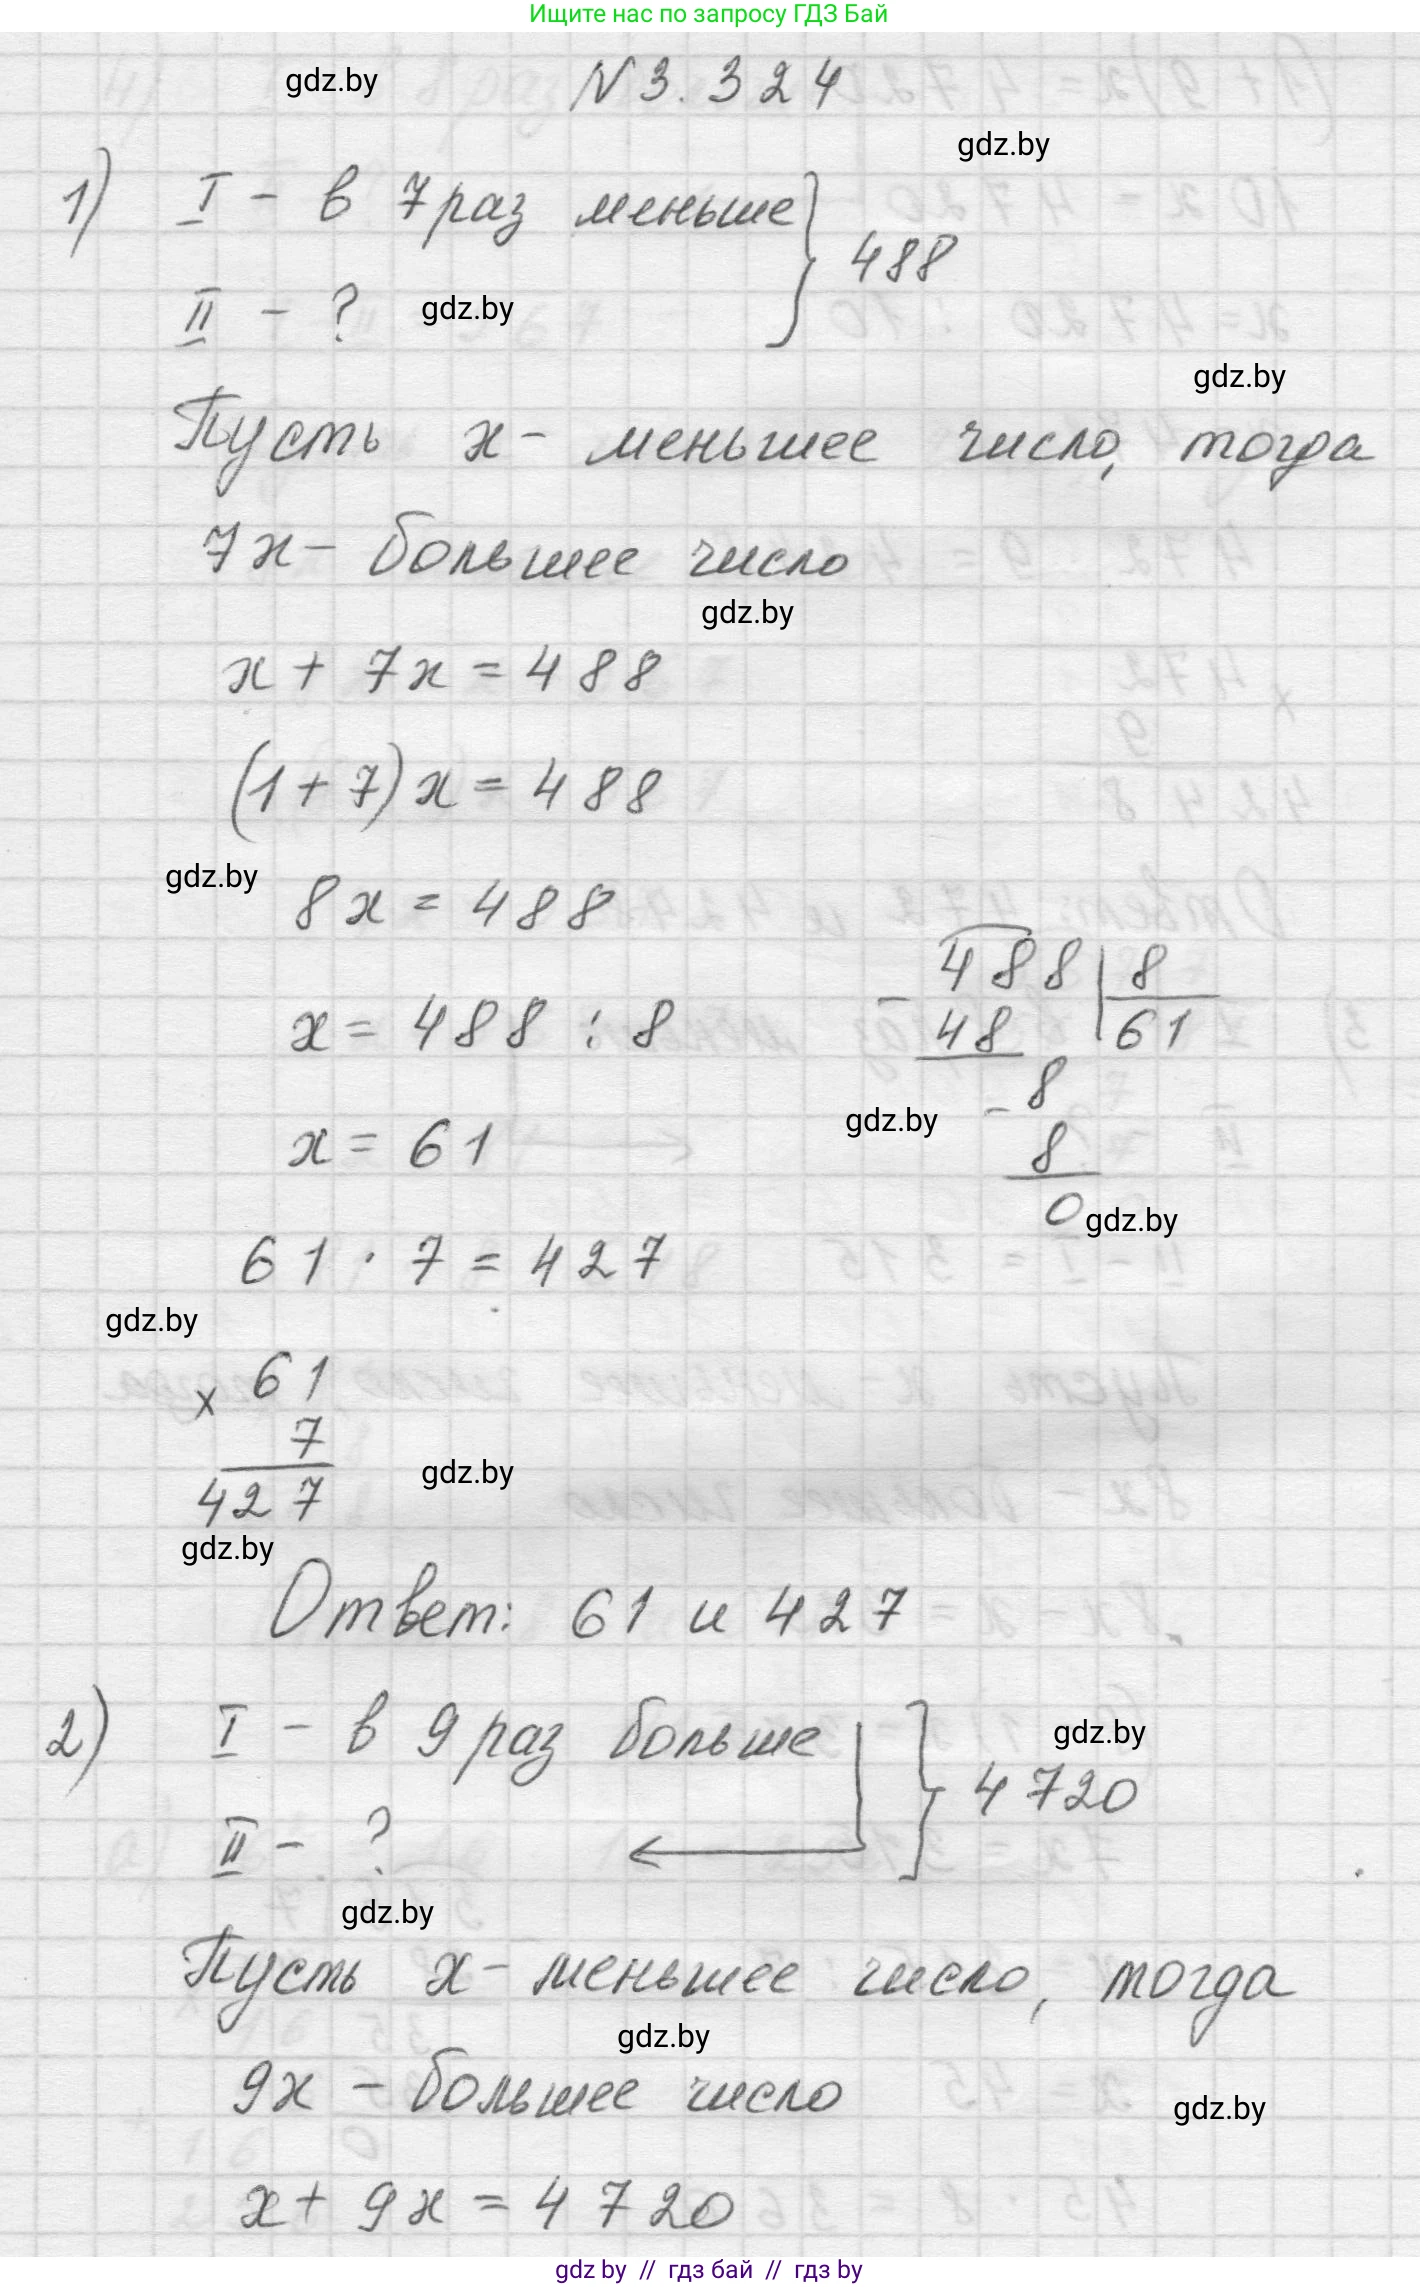 Ищите нас по запросу ГДЗ Бай
gdz.by
N 3.324
gdz.by
1) I - в 7 раз меньше
488
II - ?
gdz.by
gdz.by
Пусть x - меньшее число, тогда
7x - большее число
gdz.by
x + 7x = 488
(1 + 7)x = 488
gdz.by
8x = 488
488 | 8
x = 488 : 8
- 48 61
gdz.by
- 8
x = 61
8
0
gdz.by
61 · 7 = 427
gdz.by
x 61
7
gdz.by
427
gdz.by
Ответ: 61 и 427
2) I - в 9 раз больше
gdz.by
4720
II - ?
gdz.by
Пусть x - меньшее число, тогда
gdz.by
9x - большее число
gdz.by
x + 9x = 4720
gdz by // гдз бай // гдз by